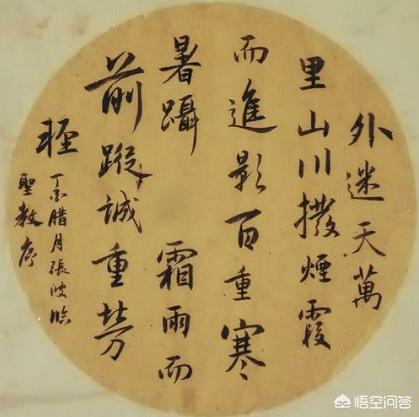 外迷天萬
里山川撥煙霞
而進影百重寒
暑躡 霜雨而
前蹤誠重勞
輕
丁酉腊月張波臨
聖教序
悟空问答